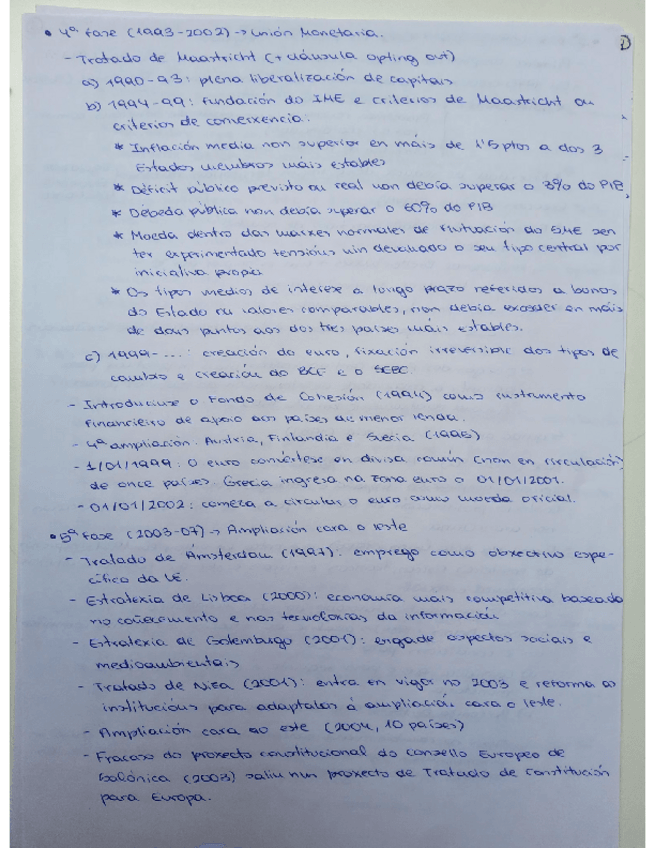 • 4ª fase (1993-2002) -> Unión Monetaria.
- Tratado de Maastricht (+ cláusula opting out)
a) 1990-93: plena liberalización de capitais
b) 1994-99: fundación do IME e criterios de Maastricht ou
criterios de converxencia:
* Inflación media non superior en máis de 1'5 ptos a dos 3
Estados membros máis estables
* Déficit público previsto ou real non debía superar o 3% do PIB,
* Débeda pública non debía superar o 60% do PIB
* Moeda dentro das marxes normales de flutuación do SME sen
ter experimentado tensións nin devaluado o seu tipo central por
iniciativa propia
* Os tipos medios de interese a longo prazo referidos a bonos
do Estado ou valores comparables, non debía exceder en máis
de dous puntos aos dos tres países máis estables.
c) 1999-...: creación do euro, fixación irreversible dos tipos de
cambio e creación do BCE e o SEBC.
- Introdúcese o Fondo de Cohesión (1994) como instrumento
financieiro de apoio aos países de menor renda.
- 4ª ampliación: Austria, Finlandia e Suecia (1995)
- 1/01/1999: o euro convértese en divisa común (non en circulación)
de once países. Grecia ingresa na zona euro o 01/01/2001.
- 01/01/2002: comeza a circular o euro como moeda oficial.
• 5ª fase (2003-07) -> Ampliación cara o leste
- Tratado de Ámsterdam (1997): emprego como obxectivo espe-
cífico da UE.
- Estratexia de Lisboa (2000): economía mais competitiva baseada
no coñecemento e nas tecnoloxías da información
- Estratexia de Gotemburgo (2001): engade aspectos sociais e
medioambientais
- Tratado de Niza (2001): entra en vigor no 2003 e reforma as
institucións para adaptalas á ampliación cara o leste.
- Ampliación cara ao este (2004, 10 países)
- Fracaso do proxecto constitucional do Consello Europeo de
Salónica (2003) saliu nun proxecto de Tratado de Constitución
para Europa.